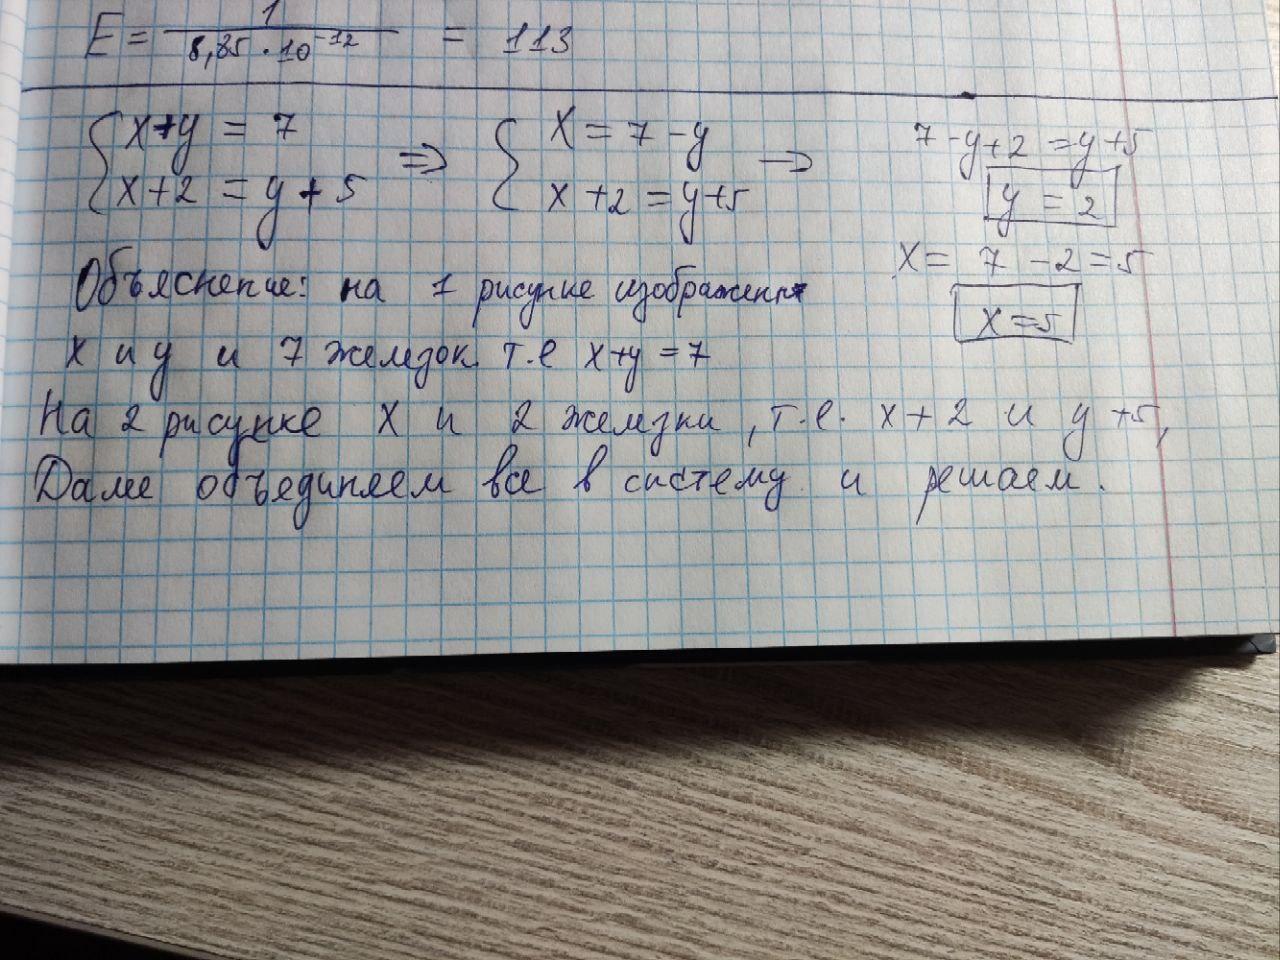 E = 1 / 8,85 · 10^-12 = 113
{ x+y = 7 => { x = 7 - y -> 7 - y + 2 = y + 5
x + 2 = y + 5 x + 2 = y + 5 y = 2
x = 7 - 2 = 5
Объяснение: на 1 рисунке изображены x = 5
x и y и 7 железок т.е x+y = 7
На 2 рисунке x и 2 железки, т.е. x + 2 и y + 5,
Далее объединяем все в систему и решаем.